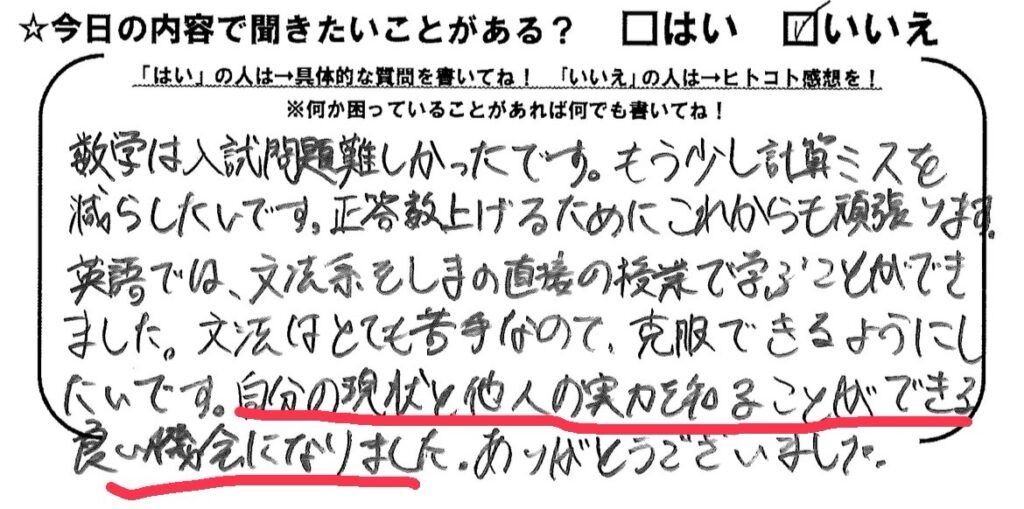 ☆今日の内容で聞きたいことがある？ □はい ☑いいえ
「はい」の人は→具体的な質問を書いてね！ 「いいえ」の人は→ヒトコト感想を！
※何か困っていることがあれば何でも書いてね！
数学は入試問題難しかったです。もう少し計算ミスを
減らしたいです。正答数上げるためにこれからも頑張ります。
英語では、文法系をしまの直接の授業で学ぶことができ
ました。文法はとても苦手なので、克服できるようにし
たいです。自分の現状と他人の実力を知ることができる
良い機会になりました。ありがとうございました。